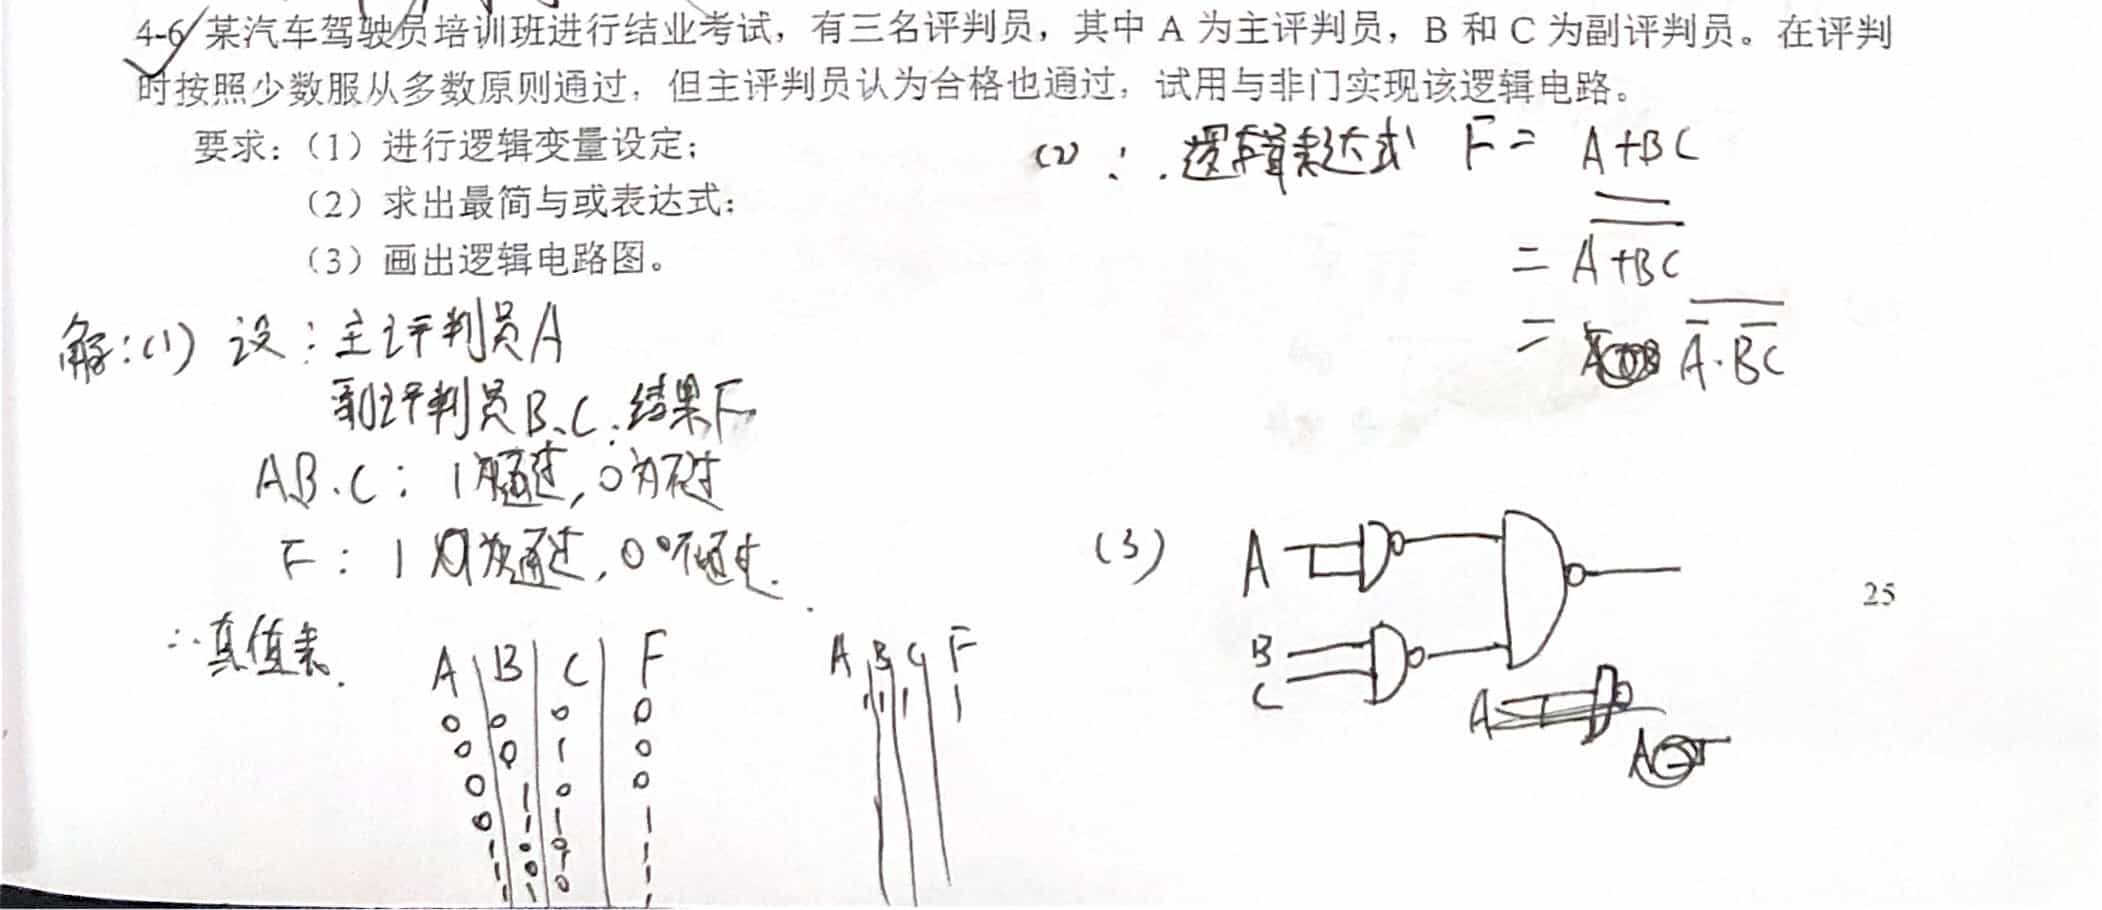 4-6 某汽车驾驶员培训班进行结业考试，有三名评判员，其中 A 为主评判员，B 和 C 为副评判员。在评判
时按照少数服从多数原则通过，但主评判员认为合格也通过，试用与非门实现该逻辑电路。
要求：（1）进行逻辑变量设定；
（2）求出最简与或表达式；
（3）画出逻辑电路图。
解：(1) 设：主评判员A
副评判员B、C；结果F
A B、C：1为通过，0为不过
F：1 为通过，0 不通过.
∴真值表.
A B C F
0 0 0 0
0 0 1 0
0 1 0 0
0 1 1 1
1 0 0 1
1 0 1 1
1 1 0 1
A B C F
1 1 1 1
(2) ∴逻辑表达式 F = A+BC
= A̿+̿B̿C̿
= \overline{\overline{A}·\overline{BC}}
(3) A
B
C
A
A
25